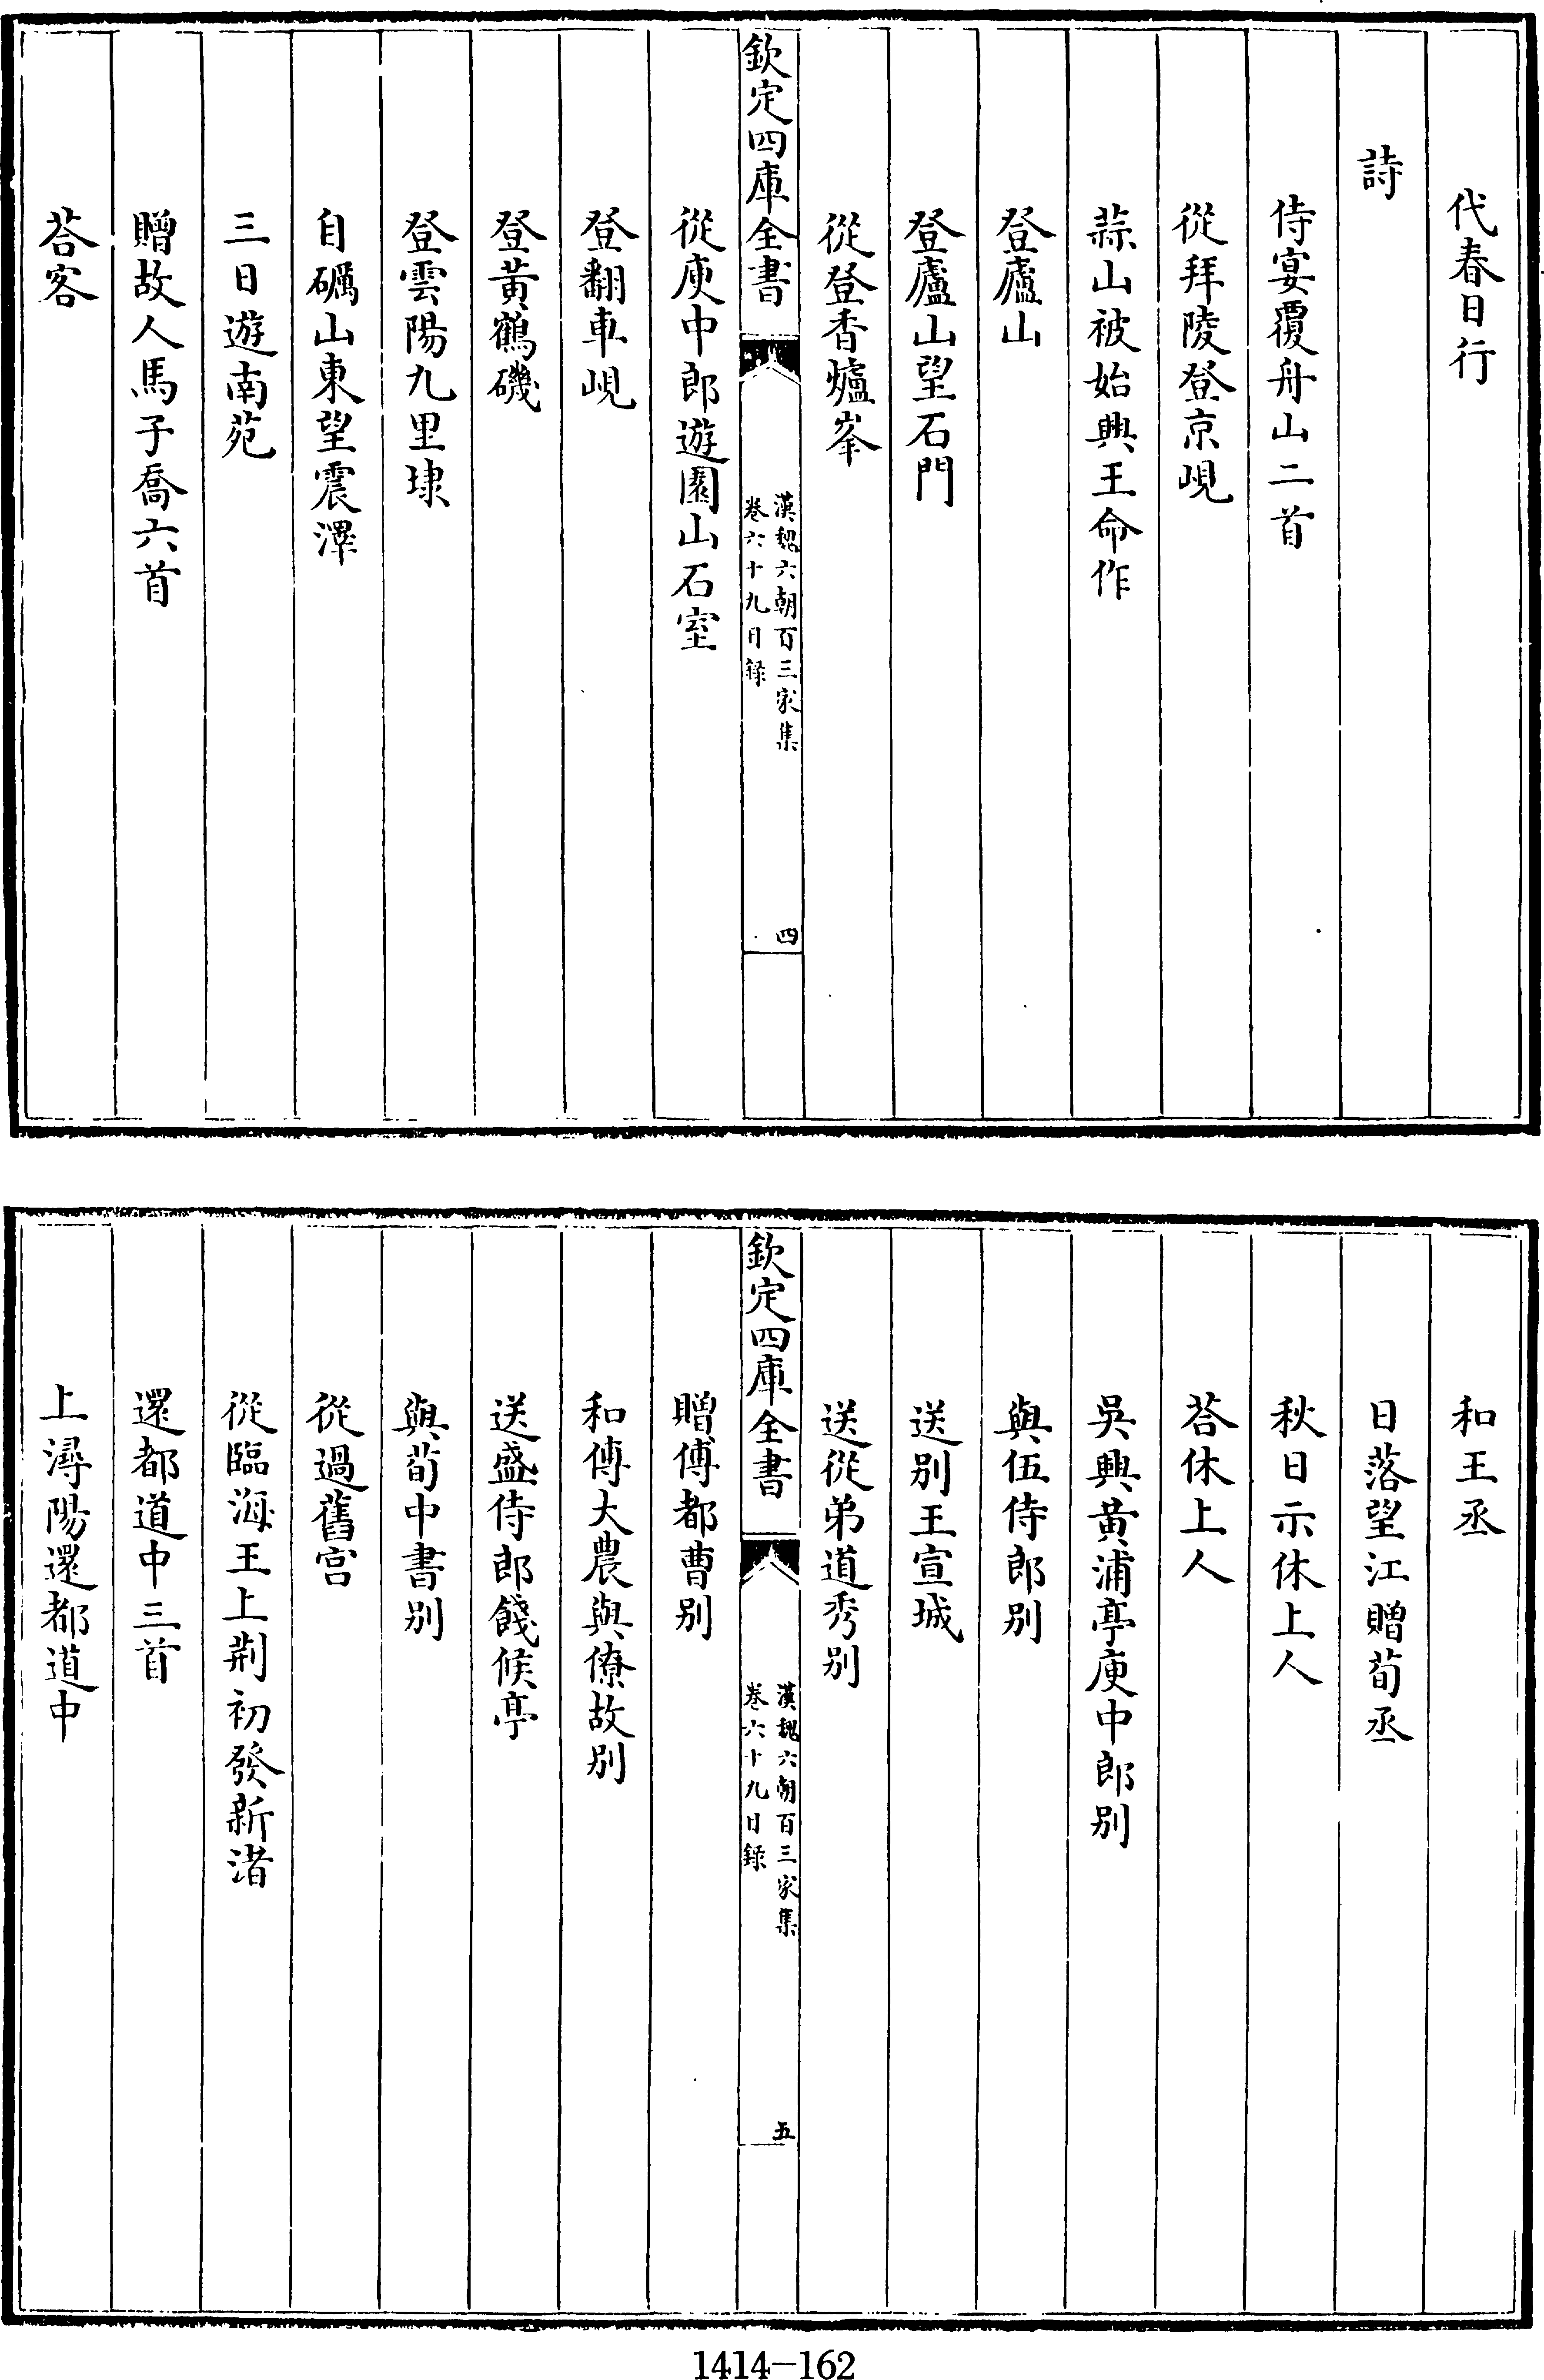 代春日行
詩
侍宴覆舟山二首
從拜陵登京峴
蒜山被始興王命作
登廬山
登廬山望石門
從登香爐峯
欽定四庫全書
漢魏六朝百三家集
卷六十九目錄
四
從庾中郎遊園山石室
登翻車峴
登黃鶴磯
登雲陽九里埭
自礪山東望震澤
三日遊南苑
贈故人馬子喬六首
荅客
和王丞
日落望江贈荀丞
秋日示休上人
荅休上人
吳興黃浦亭庾中郎别
與伍侍郎别
送别王宣城
送從弟道秀别
欽定四庫全書
漢魏六朝百三家集
卷六十九目錄
五
贈傅都曹别
和傅大農與僚故别
送盛侍郎餞候亭
與荀中書别
從過舊宮
從臨海王上荆初發新渚
還都道中三首
上潯陽還都道中
1414-162